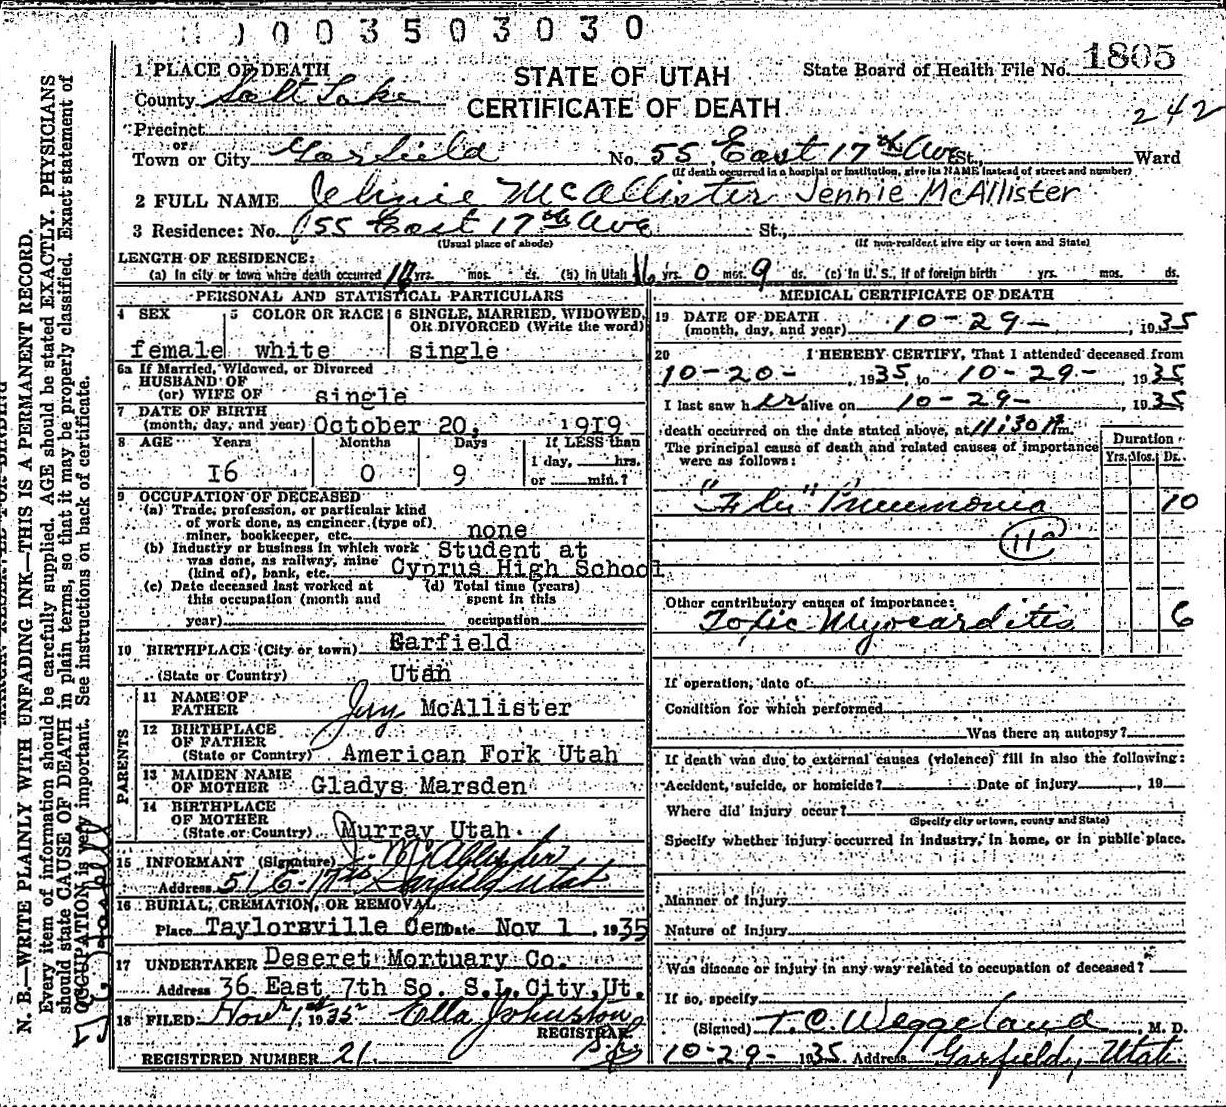 0 0 3 5 0 3 0 3 0
1 PLACE OF DEATH
STATE OF UTAH
CERTIFICATE OF DEATH
State Board of Health File No. 1805
242
County Salt Lake
Precinct
or
Town or City Garfield No. 55 East 17th Ave St., Ward
(If death occurred in a hospital or institution, give its NAME instead of street and number)
2 FULL NAME Jennie McAllister Jennie McAllister
3 Residence: No. 55 East 17th Ave St.,
(Usual place of abode) (If non-resident give city or town and State)
LENGTH OF RESIDENCE:
(a) In city or town where death occurred 16 yrs. mos. ds. (b) In Utah 16 yrs. 0 mos. 9 ds. (c) In U. S., if of foreign birth yrs. mos. ds.
PERSONAL AND STATISTICAL PARTICULARS
4 SEX 5 COLOR OR RACE 6 SINGLE, MARRIED, WIDOWED, OR DIVORCED (Write the word)
female white single
6a If Married, Widowed, or Divorced
HUSBAND OF
(or) WIFE OF single
7 DATE OF BIRTH
(month, day, and year) October 20, 1919
8 AGE Years Months Days If LESS than
1 day, hrs.
or min.?
16 0 9
9 OCCUPATION OF DECEASED
(a) Trade, profession, or particular kind
of work done, as engineer (type of)
miner, bookkeeper, etc. none
(b) Industry or business in which work Student at
was done, as railway, mine
(kind of), bank, etc. Cyprus High School
(c) Date deceased last worked at (d) Total time (years)
this occupation (month and spent in this
year) occupation
10 BIRTHPLACE (City or town) Garfield
(State or Country) Utah
PARENTS
11 NAME OF
FATHER Jay McAllister
12 BIRTHPLACE
OF FATHER
(State or Country) American Fork Utah
13 MAIDEN NAME
OF MOTHER Gladys Marsden
14 BIRTHPLACE
OF MOTHER
(State or Country) Murray Utah
15 INFORMANT (Signature) J. McAllister
Address 51 E-17th Garfield Utah
16 BURIAL, CREMATION, OR REMOVAL
Place Taylorsville Cem Date Nov 1, 1935
17 UNDERTAKER Deseret Mortuary Co.
Address 36 East 7th So. S.L.City, Ut.
18 FILED Nov 1st, 1935 Ella Johnston
REGISTRAR
REGISTERED NUMBER 21
MEDICAL CERTIFICATE OF DEATH
19 DATE OF DEATH
(month, day, and year) 10-29-, 1935
20 I HEREBY CERTIFY, That I attended deceased from
10-20-, 1935, to 10-29-, 1935
I last saw her alive on 10-29-, 1935
death occurred on the date stated above, at 11:30 P.m.
The principal cause of death and related causes of importance
were as follows:
Duration
Yrs. Mos. Ds.
"Flu" Pneumonia 10
11a
Other contributory causes of importance:
Toxic Myocarditis 6
If operation, date of
Condition for which performed
Was there an autopsy?
If death was due to external causes (violence) fill in also the following:
Accident, suicide, or homicide? Date of injury, 19
Where did injury occur?
(Specify city or town, county and State)
Specify whether injury occurred in industry, in home, or in public place.
Manner of Injury
Nature of Injury
Was disease or injury in any way related to occupation of deceased?
If so, specify
(Signed) T. C. Weggeland, M. D.
10-29-1935 Address Garfield, Utah.
N. B.—WRITE PLAINLY WITH UNFADING INK—THIS IS A PERMANENT RECORD.
Every item of information should be carefully supplied. AGE should be stated EXACTLY. PHYSICIANS
should state CAUSE OF DEATH in plain terms, so that it may be properly classified. Exact statement of
OCCUPATION is very important. See instructions on back of certificate.